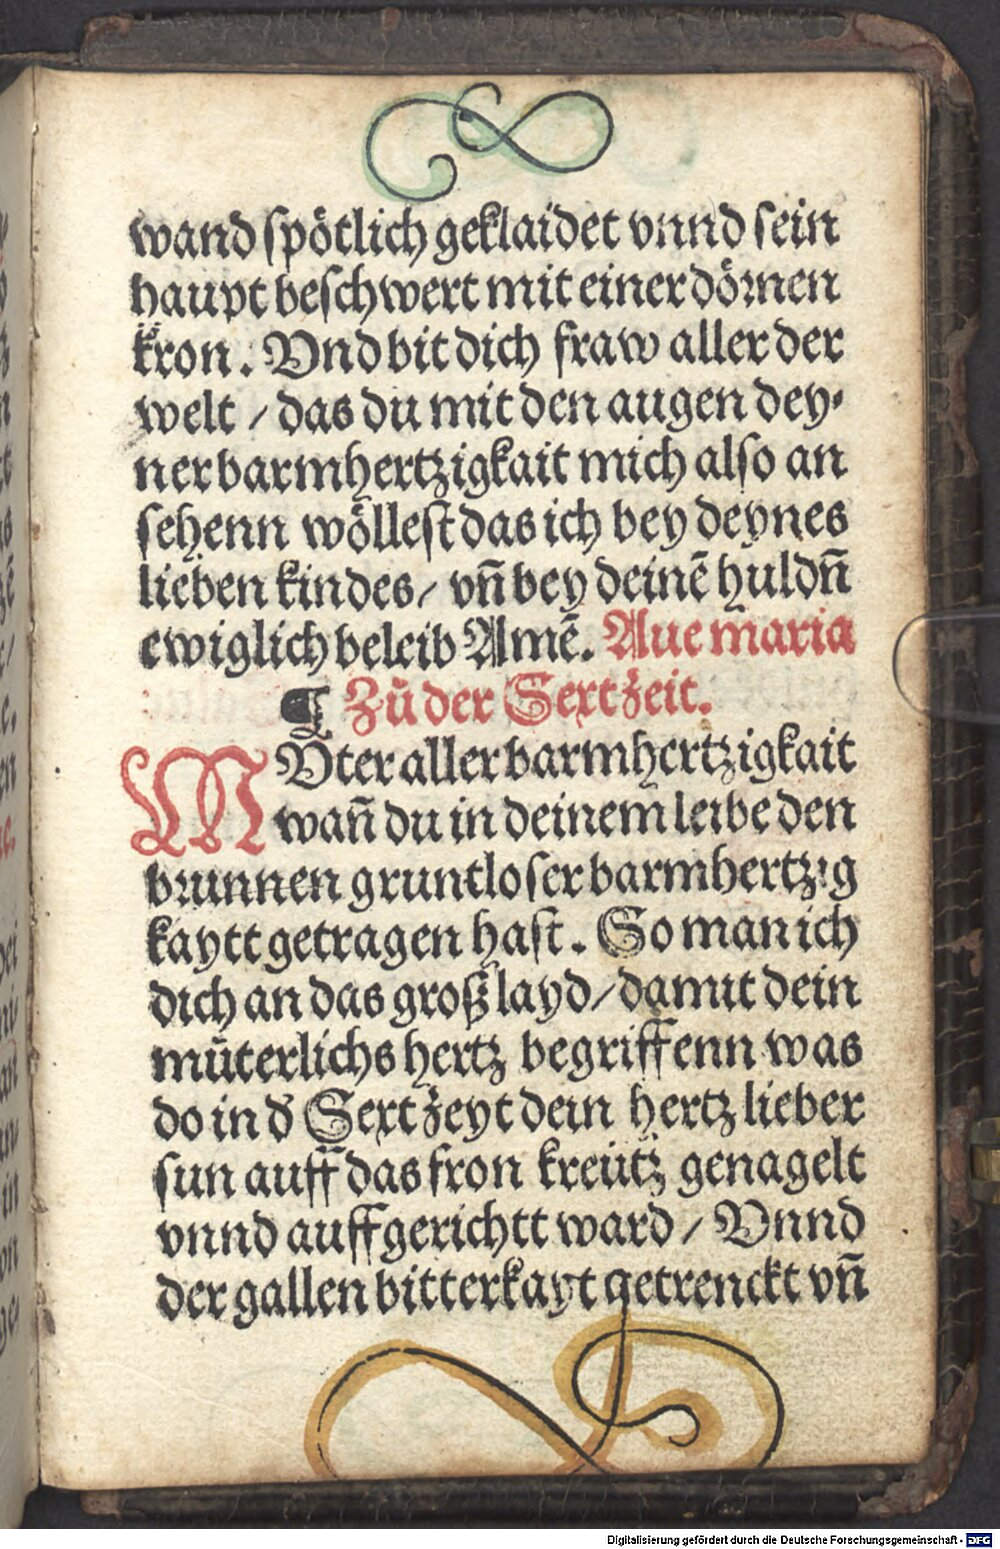 wand spötlich geklaidet vnnd sein
haupt beschwert mit einer dörnen
kron. Vnd bit dich fraw aller der
welt / das du mit den augen dey⸗
ner barmhertzigkait mich also an
sehenn wöllest das ich bey deynes
lieben kindes / vñ bey deinē huldñ
ewiglich beleib Amē. Aue maria
¶ Zů der Sext zeit.
MVter aller barmhertzigkait
wañ du in deinem leibe den
brunnen gruntloser barmhertzig
kaytt getragen hast. So man ich
dich an das groß layd / damit dein
můterlichs hertz begriffenn was
do in d' Sext zeyt dein hertz lieber
sun auff das fron kreütz genagelt
vnnd auffgerichtt ward / Vnnd
der gallen bitterkayt getrenckt vñ
Digitalisierung gefördert durch die Deutsche Forschungsgemeinschaft - DFG